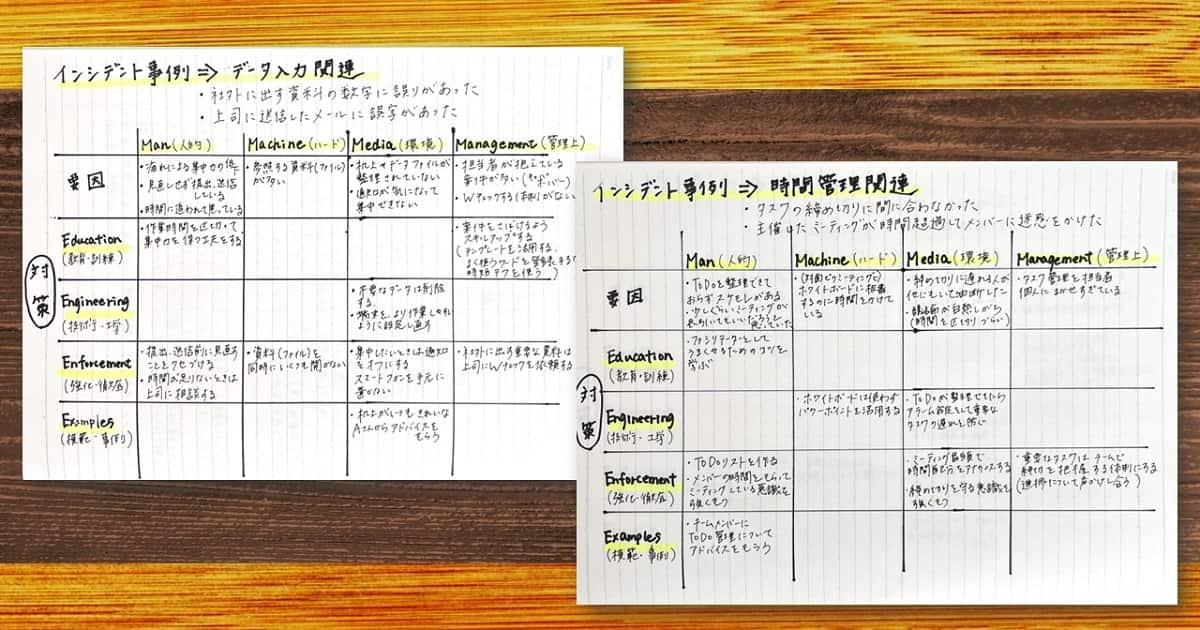 インシデント事例⇒ データ入力関連
・社外に出す資料の数字に誤りがあった
・上司に送信したメールに誤字があった
Man(人的)
Machine(ハード)
Media(環境)
Management(管理上)
要因
・疲れによる集中力の低下
・見直しせず提出、送信
している
・時間に追われて焦っている
・参照する資料(ファイル)
が多い
・机上やデータファイルが
整理されていない
・通知が気になって
集中できない
・担当者が抱えている
案件が多い
・Wチェックする体制がない
対策
Education
(教育・訓練)
・作業時間を区切って
集中力を保つ工夫をする
・案件をさばけるよう
スキルアップする
(テンプレートを活用する、
よく使うワードを登録する、
時短テクを使う)
Engineering
(技術・工学)
・不要なデータは削除
する。
・端末を、より作業しやすい
ように設定し直す
Enforcement
(強化・徹底)
・提出、送信前に見直す
ことをクセづける
・時間が足りないときは
上司に相談する
・資料(ファイル)を
同時にいくつも開かない
・集中したいときは通知
をオフにする
スマートフォンを手元に
置かない
・社外に出す重要な資料は
上司にWチェックを依頼する
Examples
(模範・事例)
・机上がいつもきれいな
Aさんからアドバイスを
もらう
インシデント事例 ⇒ 時間管理関連
・タスクの締め切りに間に合わなかった
・主催したミーティングが時間超過してメンバーに迷惑をかけた
Man(人的)
Machine(ハード)
Media(環境)
Management(管理上)
要因
・ToDoを整理できて
おらずヌケモレがある
・少しくらいミーティングが
長引いてもいいだろうと
思っていた
・(対面でのミーティングで)
ホワイトボードに板書
するのに時間をかけて
いる
・締め切りに遅れる人が
他にもいて油断した
(時間を区切りづらい)
・タスク管理を担当者
個人にまかせすぎている
対策
Education
(教育・訓練)
・ファシリテーターとして
うまくやるためのコツを
学ぶ
Engineering
(技術・工学)
・ホワイトボードは使わず
パワーポイントを活用する
・ToDoが整理できたら
アラーム設定をして重要な
タスクの遅れを防ぐ
Enforcement
(強化・徹底)
・ToDoリストを作る
・メンバーの時間をもらって
ミーティングしている意識を
強くもつ
・ミーティング冒頭で
時間配分をアナウンスする
・締め切りを守る意識を
強くもつ
・重要なタスクはチームで
締切を把握する体制にする
(進捗について声かけし合う)
Examples
(模範・事例)
・チームメンバーに
ToDo管理について
アドバイスをもらう